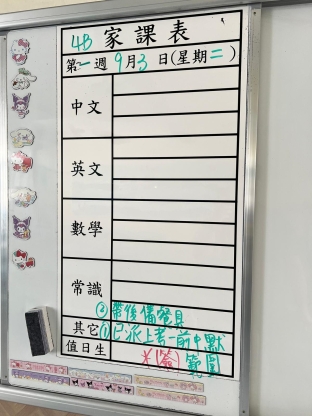 4B 家課表
第一週 9月3日(星期二)
中文
英文
數學
常識
②帶後備餐具
其它 ①已派上學期中默
值日生 *(簽) 範圍